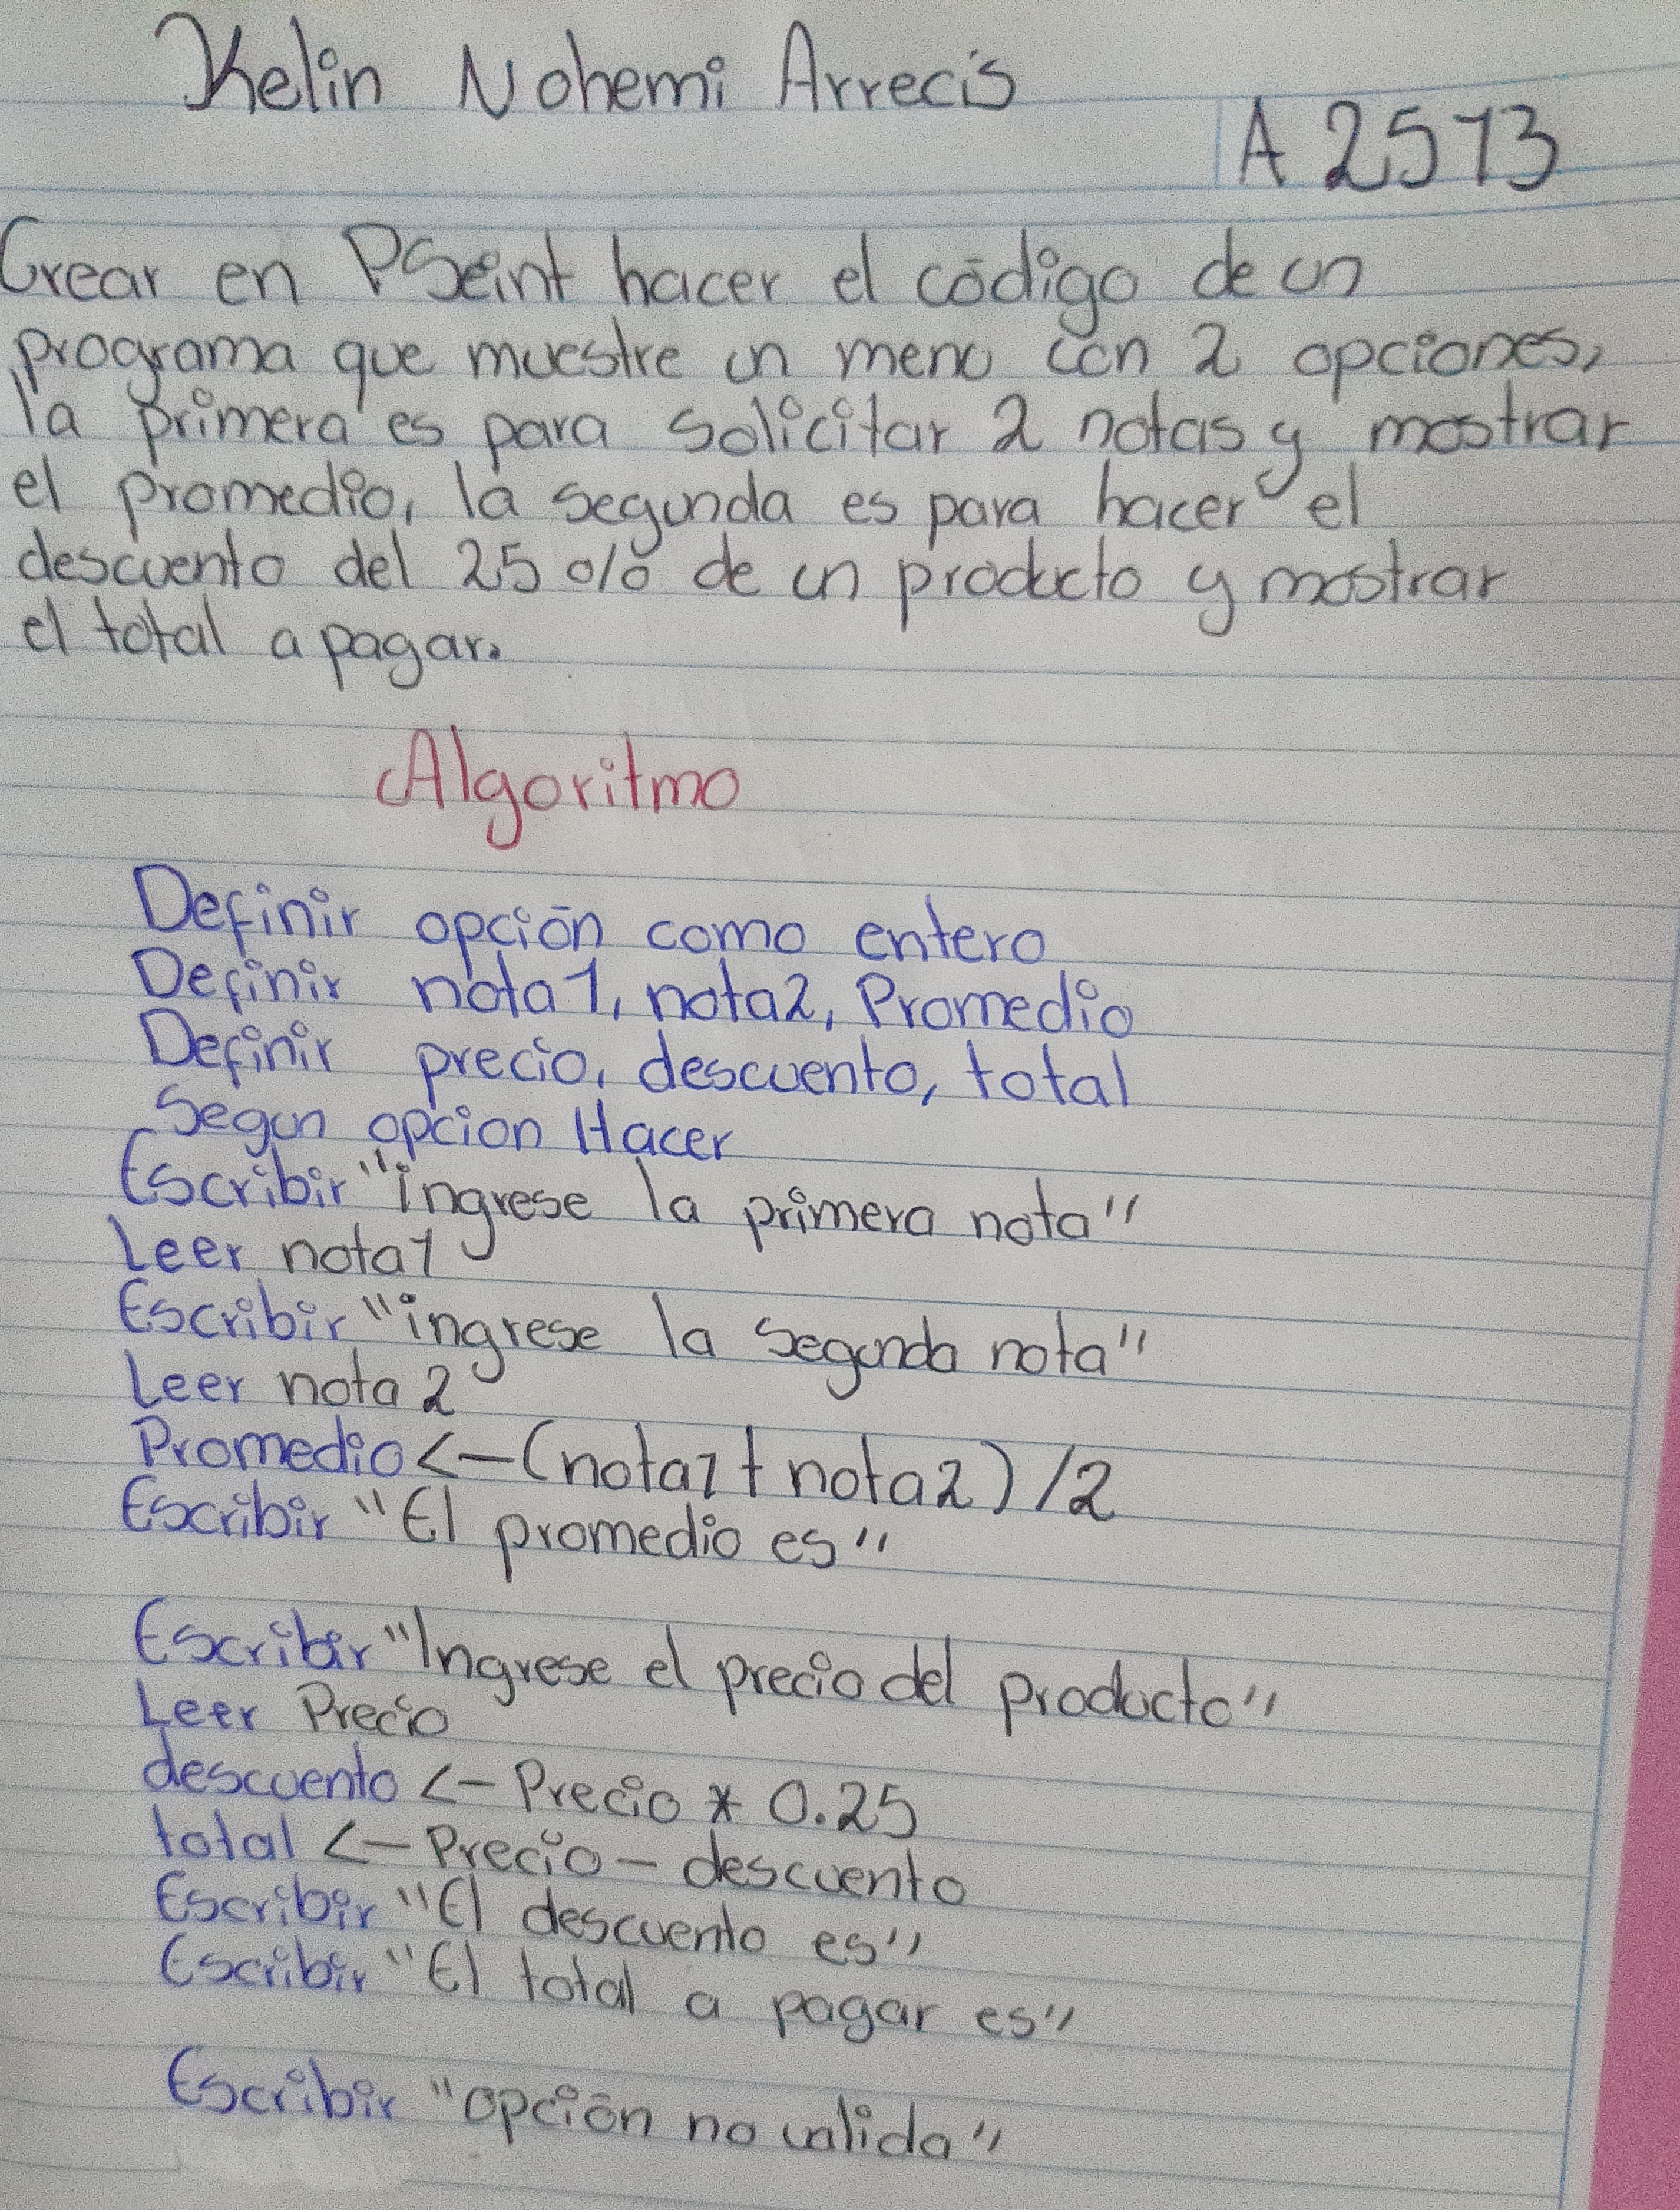 Kelin Nohemi Arrecis
A 2573
Crear en PSeint hacer el código de un
programa que muestre un menu con 2 opciones,
la primera es para solicitar 2 notas y mostrar
el promedio, la segunda es para hacer el
descuento del 25 % de un producto y mostrar
el total a pagar.
Algoritmo
Definir opción como entero
Definir nota1, nota2, Promedio
Definir precio, descuento, total
Segun opcion Hacer
Escribir "ingrese la primera nota"
Leer nota1
Escribir "ingrese la segunda nota"
Leer nota 2
Promedio <- (nota1 + nota2) /2
Escribir "El promedio es"
Escribir "Ingrese el precio del producto"
Leer Precio
descuento <- Precio * 0.25
total <- Precio - descuento
Escribir "El descuento es"
Escribir "El total a pagar es"
Escribir "opción no valida"